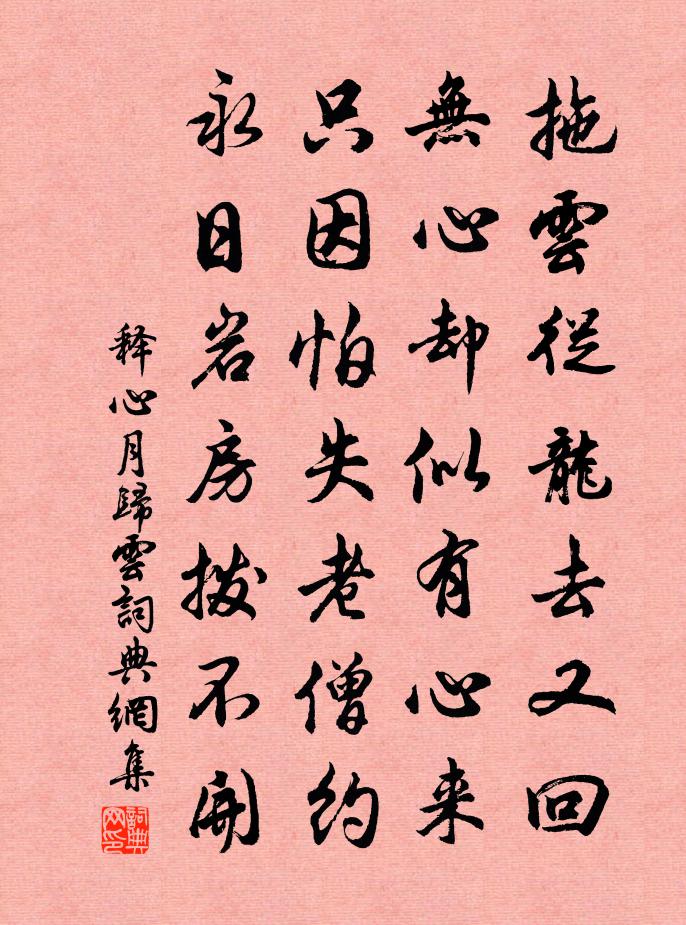 拖雲從龍去又回
無心却似有心来
只因怕失老僧約
永日岩房撥不開
释心月歸雲詞典網集
詞典
网印